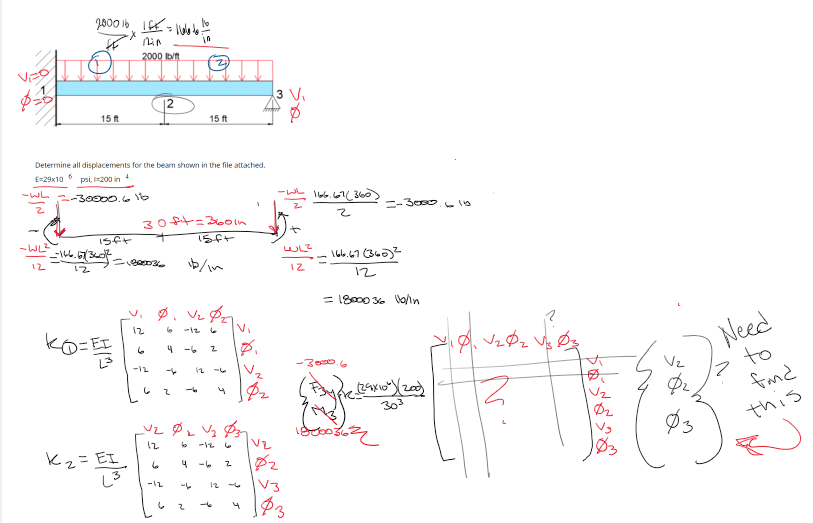 2000 lb
ft
x
1 ft
12in
= 166.6 lb
in
2000 lb/ft
1
2
V1=0
1
Ø=0
2
3
V1
Ø
15 ft
15 ft
Determine all displacements for the beam shown in the file attached.
E=29x10 6 psi, I=200 in 4
-WL
2
= -30000.6 lb
-WL
2
166.67(360)
2
= -3000.6 lb
30ft = 360in
15ft
15ft
-
+
-WL²
12
= -166.67(360)²
12
= 1800036 lb/in
WL²
12
= 166.67(360)²
12
= 1800036 lb/in
V1 Ø1 V2 Ø2
K1 = EI
L³
12 6 -12 6 V1
6 4 -6 2 Ø1
-12 -6 12 -6 V2
6 2 -6 4 Ø2
V2 Ø2 V3 Ø3
K2 = EI
L³
12 6 -12 6 V2
6 4 -6 2 Ø2
-12 -6 12 -6 V3
6 2 -6 4 Ø3
-3000.6
M3
1800036
(29x10⁶)(200)
30³
?
V1 Ø1 V2 Ø2 V3 Ø3
V1
Ø1
V2
Ø2
V3
Ø3
?
V2
Ø2
Ø3
?
Need
to
find
this